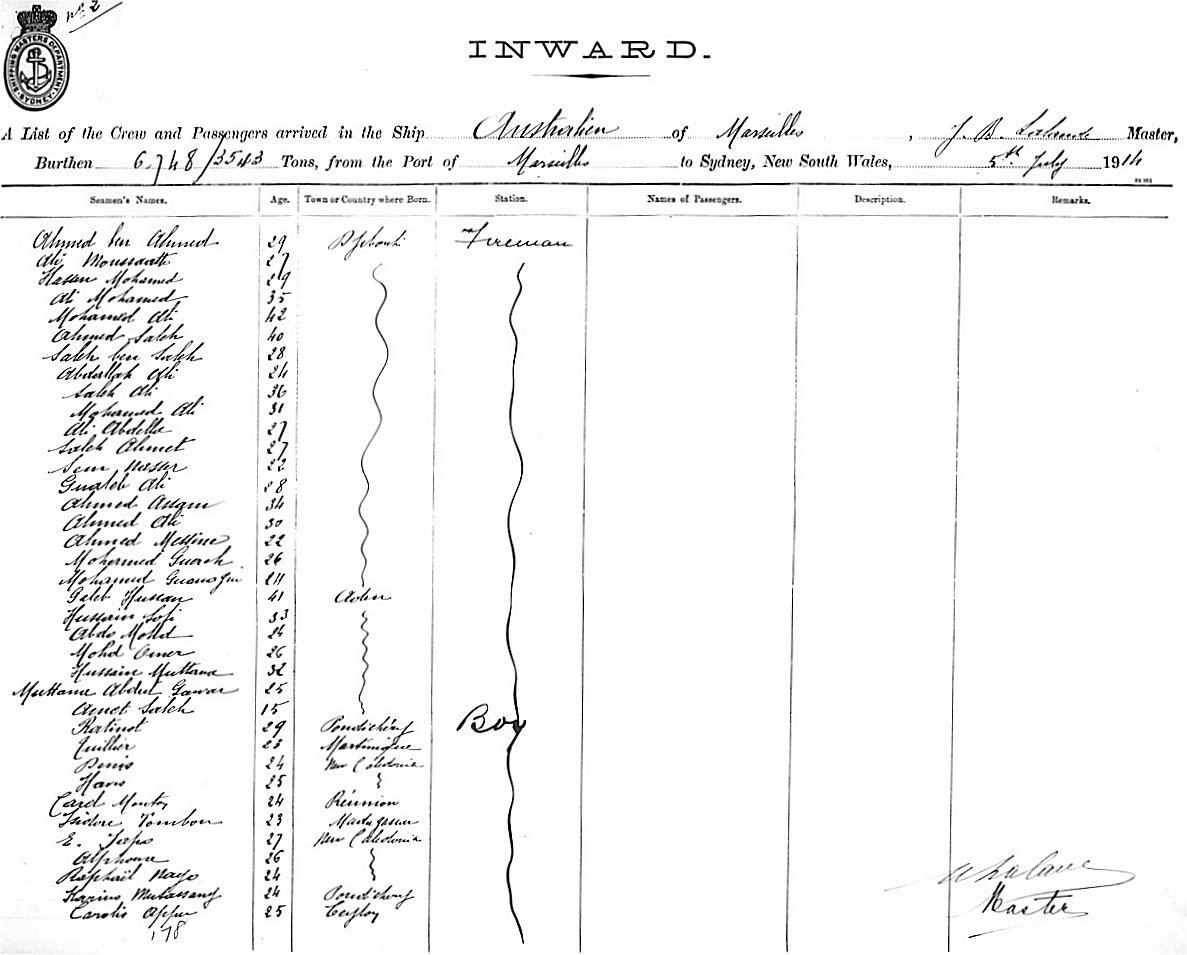 No 2
SHIPPING MASTERS DEPARTMENT
SYDNEY
INWARD.
A List of the Crew and Passengers arrived in the Ship Australien of Marseilles, J. B. Master,
Burthen 6,748/3543 Tons, from the Port of Marseilles to Sydney, New South Wales, 5th July 1914
Seamen's Names. Age. Town or Country where Born. Station. Names of Passengers. Description. Remarks.
Ahmed ben Ahmed 29 Djibouti Fireman
Ali 27
Hassen Mohamed 29
Ali Mohamed 35
Mohamed Ali 42
Ahmed Saleh 40
Saleh ben Saleh 28
Abdallah Ali 24
Saleh Ali 36
Mohammed Ali 31
Ali Abdella 27
Saleh Ahmet 27
Nasser 22
Gualeb Ali 28
Ahmed Assam 34
Ahmed Ali 30
Ahmed Messine 22
Mohammed 26
Mohamed 24
Galeb Hussan 41 Aden
Hussain Sofi 33
Abdo Mohd 24
Mohd Omer 26
Hussain Muttana 32
Muttana Abdul Gawar 25
Amet Saleh 15 Boy
Ratinot 29 Pondichéry
Juillier 23 Martinique
Denis 24 New Caledonia
25
Card 24 Réunion
Isidore Tombon 23 Madagascar
E. 27 New Caledonia
Alphonse 26
Raphaël 24
24 Pondichéry
Carolis Appu 25 Ceylon
178
Master